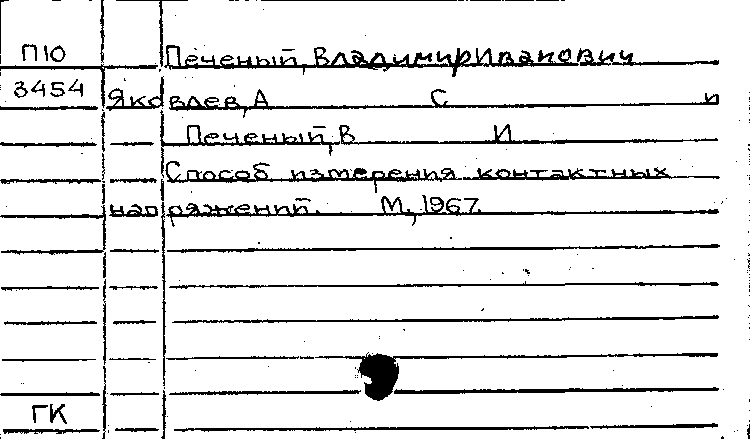 П10 Печеный, Владимир Иванович
3454 Яковлев, А С и
Печеный, В И
Способ измерения контактных
напряжений. М, 1967.
ГК